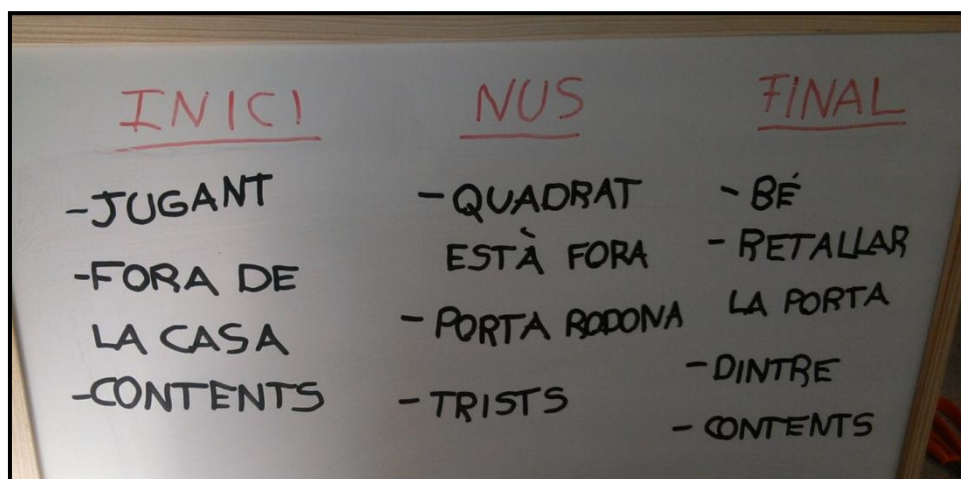 INICI
- JUGANT
- FORA DE
LA CASA
- CONTENTS
NUS
- QUADRAT
ESTÀ FORA
- PORTA RODONA
- TRISTS
FINAL
- BÉ
- RETALLAR
LA PORTA
- DINTRE
- CONTENTS